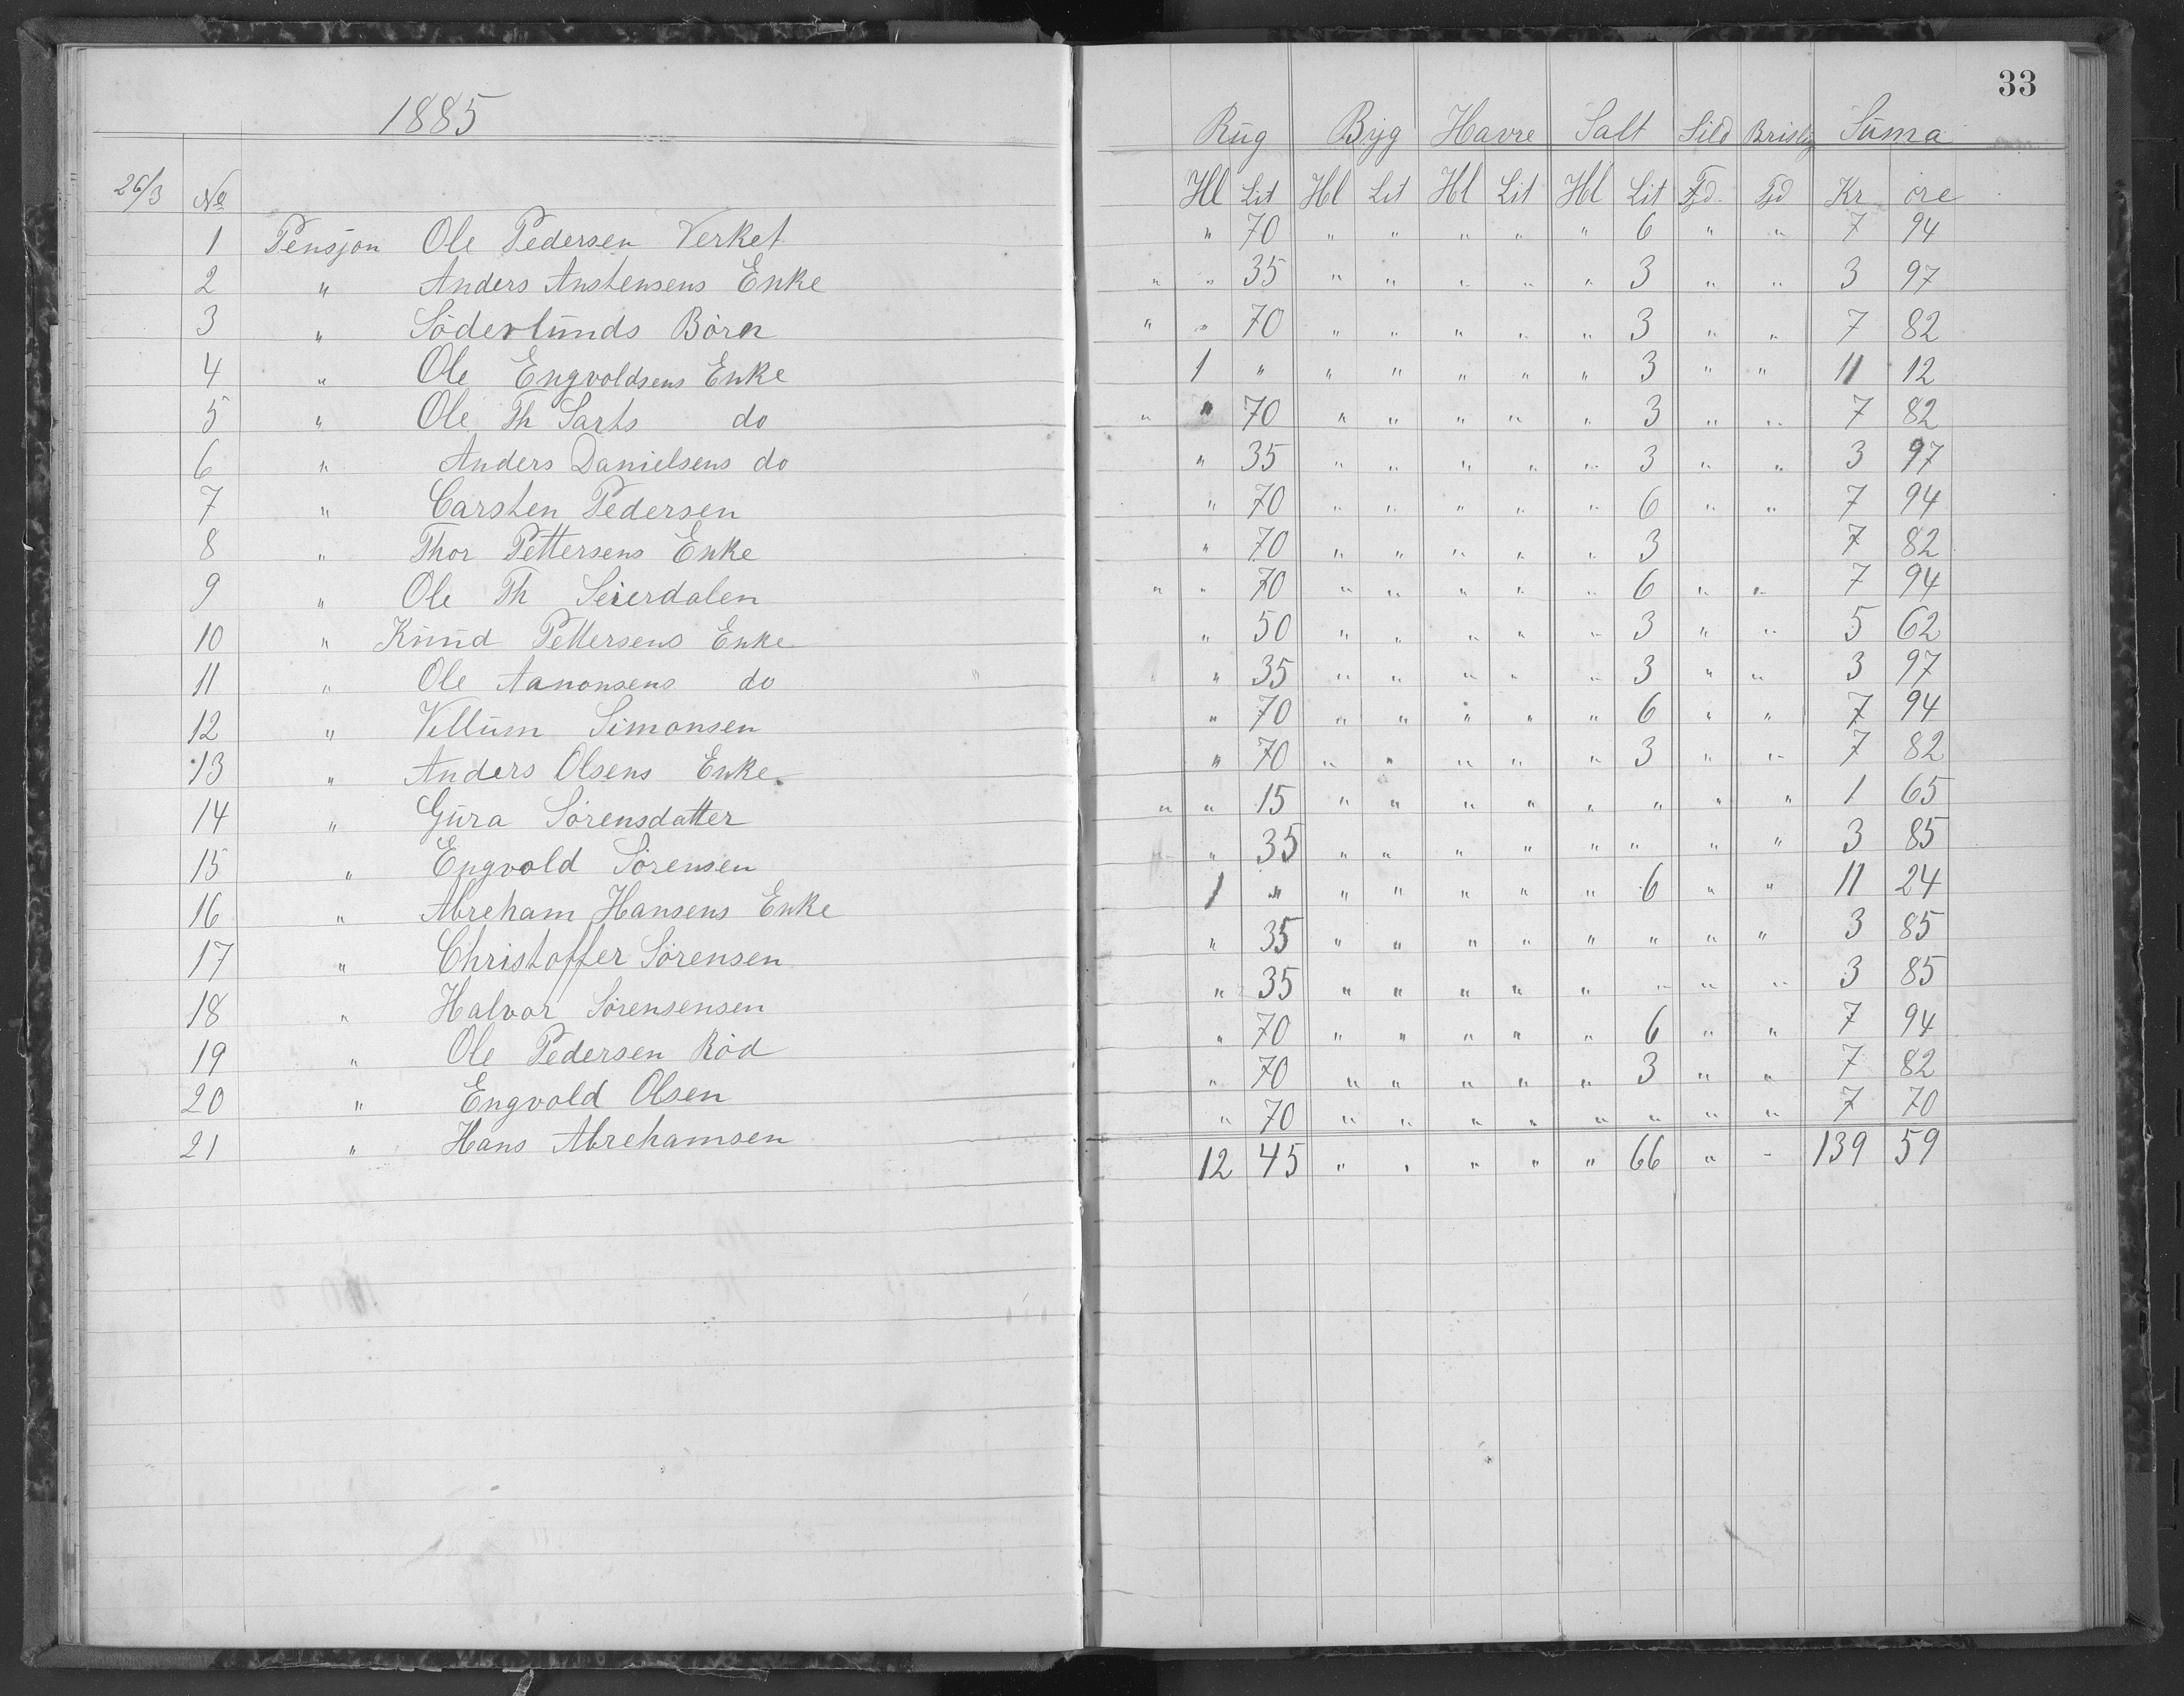 1885
26/3 No
1 Pensjon Ole Pedersen Verket
2 " Anders Anstensens Enke
3 " Söderlunds Börn
4 " Ole Engvoldsens Enke
5 " Ole Th Sarts do
6 " Anders Danielsens do
7 " Carsten Pedersen
8 " Thor Pettersens Enke
9 " Ole Th Seierdalen
10 " Knud Pettersens Enke
11 " Ole Aanonsens do
12 " Villum Simonsen
13 " Anders Olsens Enke
14 " Gura Sörensdatter
15 " Engvold Sörensen
16 " Abreham Hansens Enke
17 " Christoffer Sörensen
18 " Halvor Sörensensen
19 " Ole Pedersen Röd
20 " Engvold Olsen
21 " Hans Abrehamsen
33
Rug Byg Havre Salt Sild Brisling Suma
Hl Lit Hl Lit Hl Lit Hl Lit Fjd Fjd Kr öre
" 70 " " " " " 6 " " 7 94
" " 35 " " " " " 3 " " 3 97
" " 70 " " " " " 3 " " 7 82
1 " " " " " " 3 " " 11 12
" " 70 " " " " " 3 " " 7 82
" 35 " " " " " 3 " " 3 97
" 70 " " " " " 6 " " 7 94
" 70 " " " " " 3 7 82
" " 70 " " " " " 6 " " 7 94
" 50 " " " " " 3 " " 5 62
" 35 " " " " " 3 " " 3 97
" 70 " " " " " 6 " " 7 94
" 70 " " " " " 3 " " 7 82
" " 15 " " " " " " " " 1 65
" 35 " " " " " " " " 3 85
1 " " " " " " 6 " " 11 24
" 35 " " " " " " " " 3 85
" 35 " " " " " " " " 3 85
" 70 " " " " " 6 " " 7 94
" 70 " " " " " 3 " " 7 82
" 70 " " " " " " " " 7 70
12 45 " " " " " 66 " - 139 59